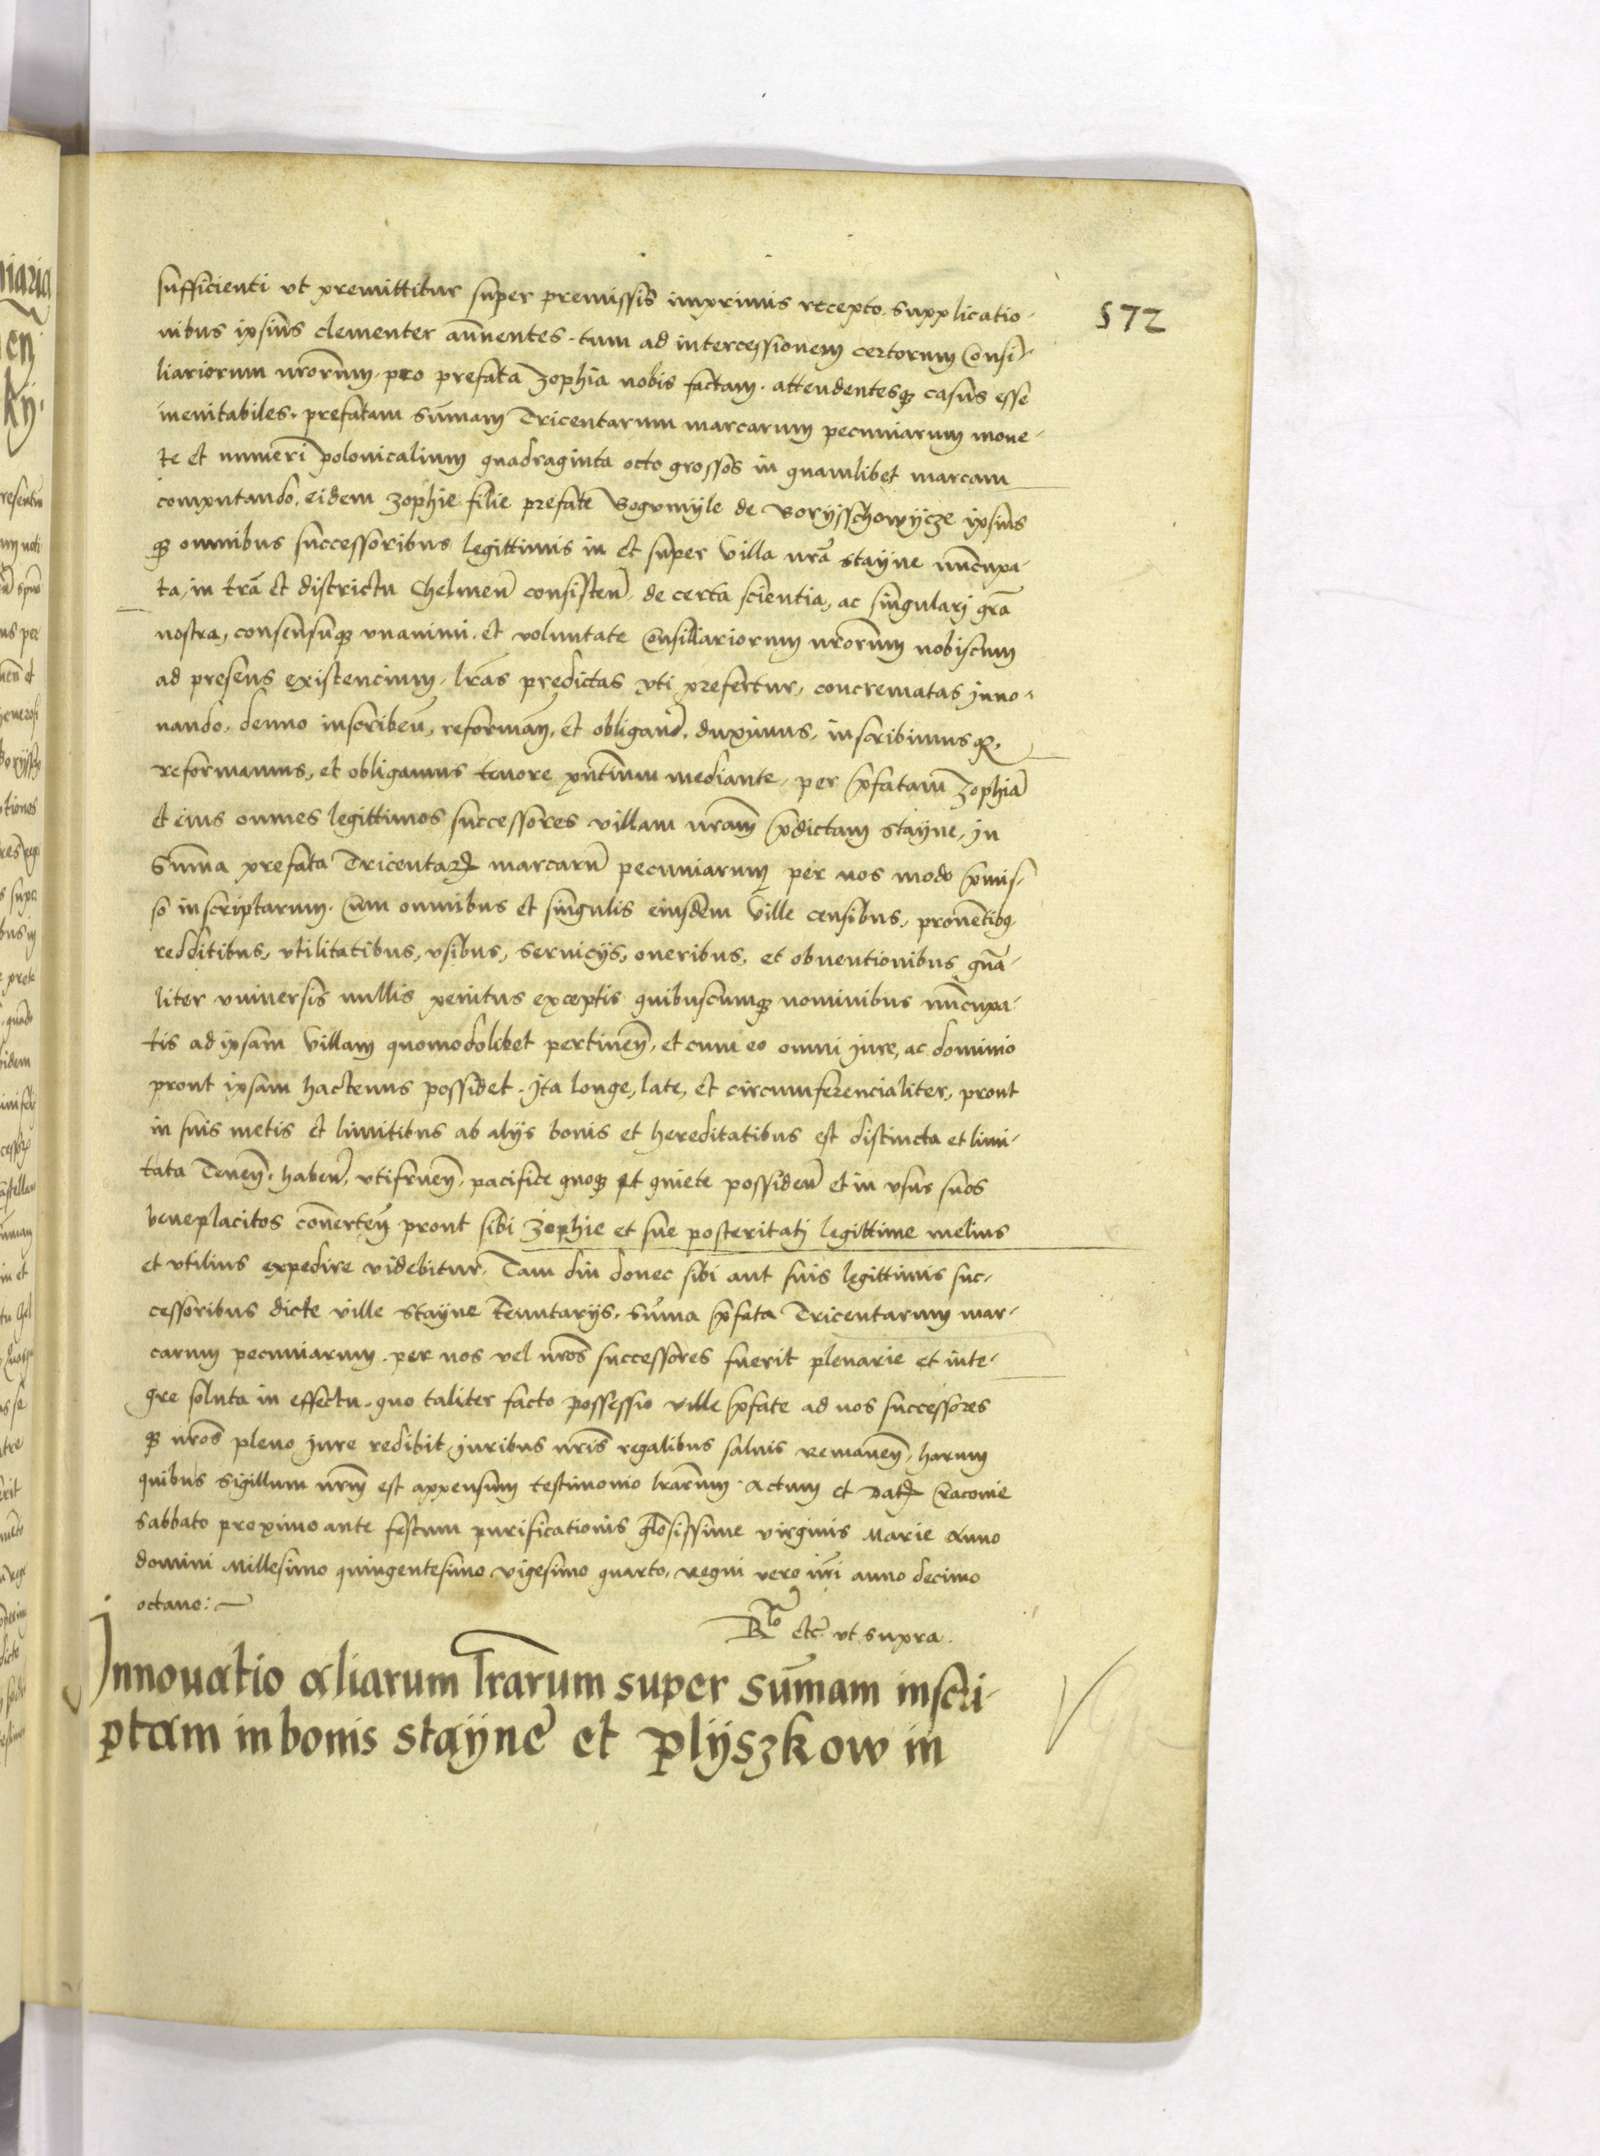 572
sufficienti vt premittitur super premissis inprimis recepto. Supplicatio-
nibus ipsius clementer an̄uentes. tum ad intercessionem certorum Consi-
liariorum nr̄orum. pro prefata Zophia nobis factam. attendentesqꝫ casus esse
ineuitabiles. prefatam Sum̄am Tricentarum marcarum pecuniarum mone-
te et numeri polonicalium quadraginta octo grossos in quamlibet marcam
computando. eidem Zophie filie prefate Bogumyle de Boryschowycze ipsius
qꝫ omnibus successoribus legittimis in et super Villa nr̄a Stayne nūcupa-
ta, in tr̄a et districtu Chelmen̄ consisten̄. de certa scientia, ac singulari gr̄a
nostra, consensuqꝫ vnanimi. et voluntate Consiliariorum nr̄orum nobiscum
ad presens existencium. lr̄as predictas vti prefertur, concrematas inno-
uando. denuo inscriben̄, reforman̄, et obligan̄. duximus. inscribimusqꝫ,
reformamus, et obligamus tenore pn̄tium mediante. per p̄fatam Zophiā
et eius omnes legittimos successores villam nr̄am p̄dictam Stayne, in
Sum̄a prefata Tricentaꝝ marcarū pecuniarum per nos modo p̄mis-
so inscriptarum. Cum omnibus et singulis eiusdem Ville censibus, prouentibꝫ
redditibus, vtilitatibus, vsibus, seruicijs, oneribus, et obuentionibus gn̄a-
liter vniuersis nullis penitus exceptis quibuscumqꝫ nominibus nūcupa-
tis ad ipsam Villam quomodolibet pertinen̄, et cum eo omni iure, ac dominio
prout ipsam hactenus possidet. Ita longe, late, et circumferencialiter, prout
in suis metis et limitibus ab alijs bonis et hereditatibus est distincta et limi-
tata Tenen̄. haben̄, vtifruen̄, pacifice quoqꝫ et quiete possiden̄ et in vsus suos
beneplacitos conuerten̄ prout sibi Zophie et sue posteritati legittime melius
et vtilius expedire videbitur. Tam diu donec sibi aut suis legittimis suc-
cessoribus dicte ville Stayne tenutarijs. Sum̄a p̄fata Tricentarum mar-
carum pecuniarum. per nos vel nr̄os successores fuerit plenarie et inte-
gre soluta in effectu. quo taliter facto possessio ville p̄fate ad nos successores
qꝫ nr̄os pleno iure redibit iuribus nr̄is regalibus saluis remanen̄. harum
quibus Sigillum nr̄m est appensum testimonio lr̄arum. Actum et Datꝭ Cracouie
Sabbato proximo ante festum purificationis gl̄osissime virginis Marie Anno
domini Millesimo quingentesimo vigesimo quarto, Regni vero nr̄i anno decimo
octauo:
Rlo etc̄ vt supra.
Innouatio aliarum lr̄arum super sum̄am inscri-
ptam in bonis Stayne et Plyszkow in